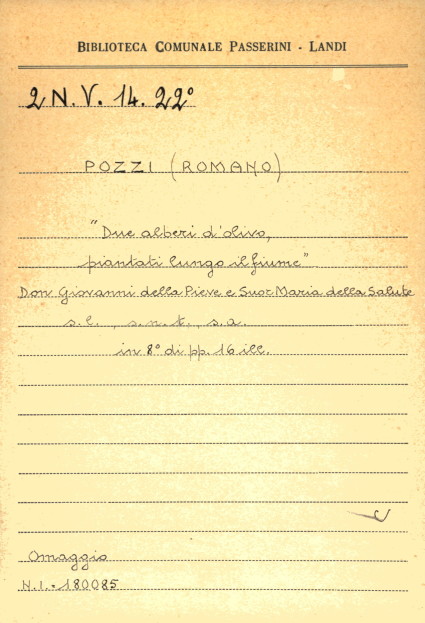 BIBLIOTECA COMUNALE PASSERINI - LANDI
2 N. V. 14. 22°
POZZI (ROMANO)
"Due alberi d'olivo,
piantati lungo il fiume"
Don Giovanni della Pieve e Suor Maria della Salute
s.l., s.n.t., s.a.
in 8° di pp. 16 ill.
Omaggio
N.I. - 180085